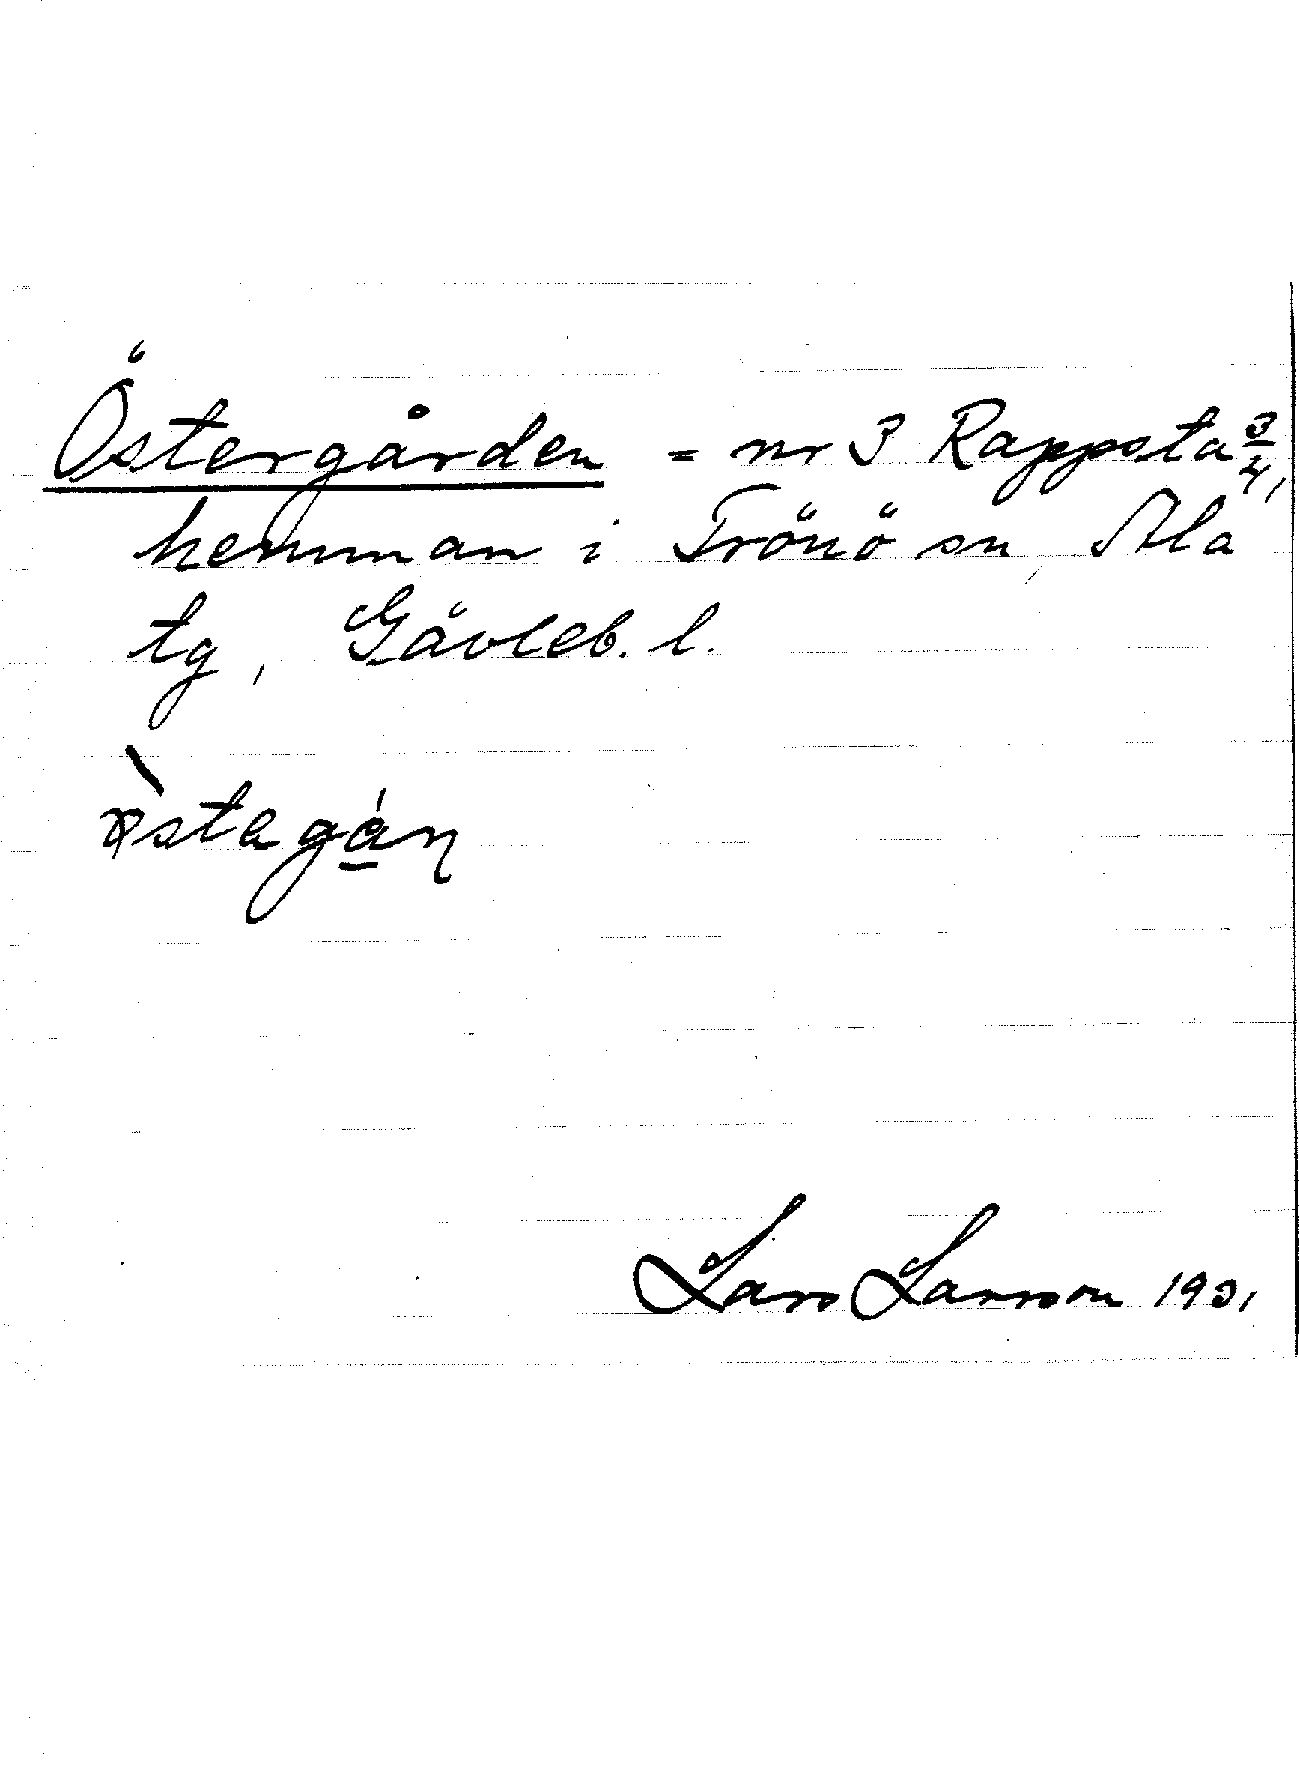 Östergården = nr 3 Rappsta 3/4,
hemman i Trönö sn, Ala
tg, Gävleb. l.
ø̀stagá̱ṇ
Lars Larsson 1931